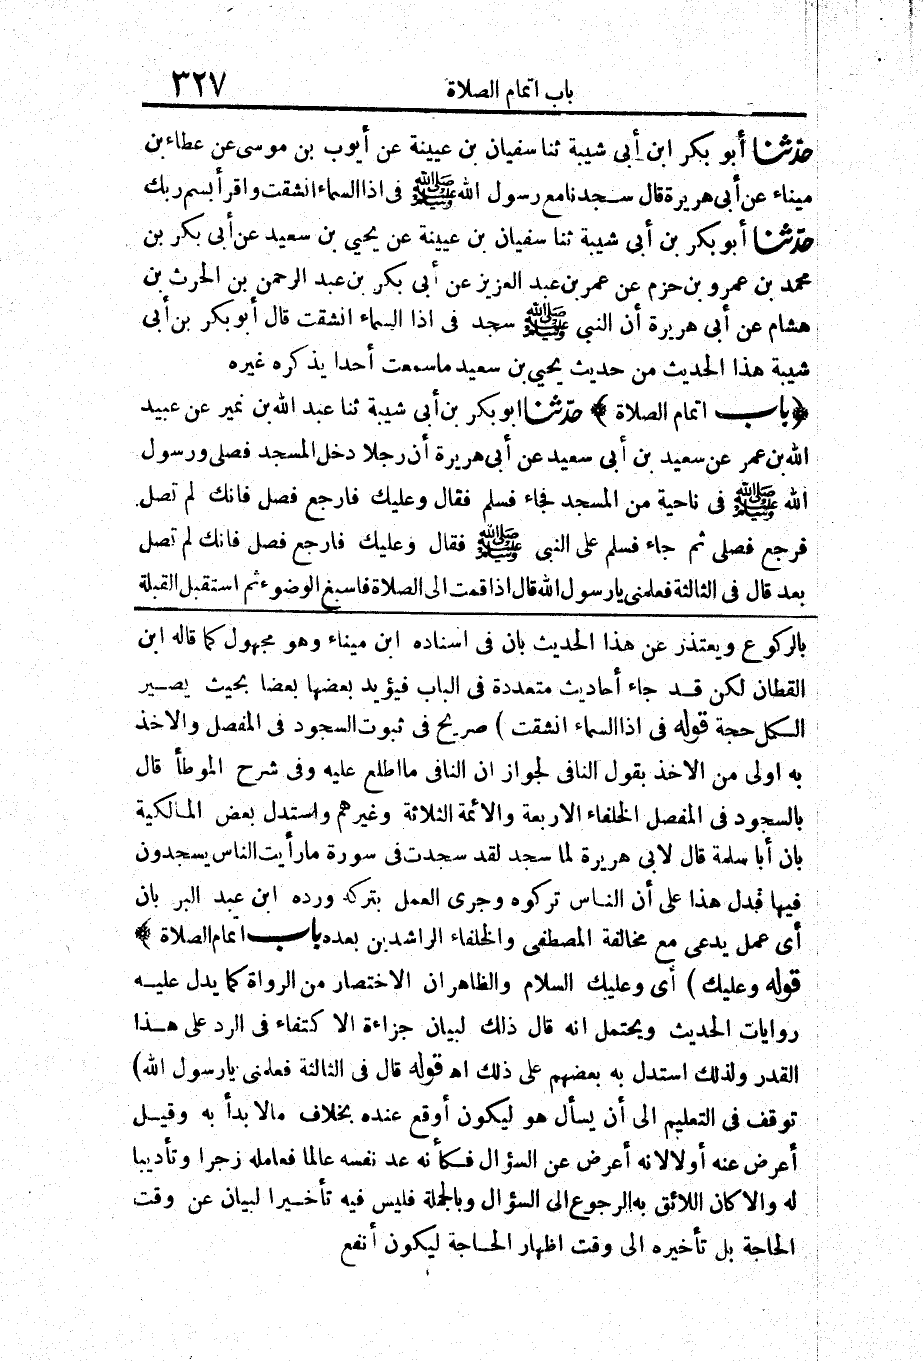 باب اتمام الصلاة ٣٢٧
حدّثنا أبو بكر ابن أبى شيبة ثنا سفيان بن عيينة عن أيوب بن موسى عن عطاء بن
ميناء عن أبى هريرة قال سجدنا مع رسول الله ﷺ فى اذا السماء انشقت واقرأ بسم ربك
حدّثنا أبو بكر بن أبى شيبة ثنا سفيان بن عيينة عن يحيي بن سعيد عن أبى بكر بن
محمد بن عمرو بن حزم عن عمر بن عبد العزيز عن أبى بكر بن عبد الرحمن بن الحرث بن
هشام عن أبى هريرة أن النبى ﷺ سجد فى اذا السماء انشقت قال أبو بكر بن أبى
شيبة هذا الحديث من حديث يحيي بن سعيد ماسمعت أحدا يذكره غيره
﴿باب اتمام الصلاة ﴾ حدّثنا ابو بكر بن أبى شيبة ثنا عبد الله بن نمير عن عبيد
الله بن عمر عن سعيد بن أبى سعيد عن أبى هريرة أن رجلا دخل المسجد فصلى ورسول
الله ﷺ فى ناحية من المسجد فجاء فسلم فقال وعليك فارجع فصل فانك لم تصل
فرجع فصلى ثم جاء فسلم على النبى ﷺ فقال وعليك فارجع فصل فانك لم تصل
بعد قال فى الثالثة فعلمنى يارسول الله قال اذا قمت الى الصلاة فاسبغ الوضوء ثم استقبل القبلة
بالركوع ويعتذر عن هذا الحديث بان فى اسناده ابن ميناء وهو مجهول كما قاله ابن
القطان لكن قد جاء أحاديث متعددة فى الباب فيؤيد بعضها بعضا بحيث يصير
الكل حجة قوله فى اذا السماء انشقت ) صريح فى ثبوت السجود فى المفصل والاخذ
به اولى من الاخذ بقول النافى لجواز ان النافى مااطلع عليه وفى شرح الموطأ قال
بالسجود فى المفصل الخلفاء الاربعة والأئمة الثلاثة وغيرهم واستدل بعض المالكية
بان أبا سلمة قال لابى هريرة لما سجد لقد سجدت فى سورة مارأيت الناس يسجدون
فيها فبدل هذا على أن الناس تركوه وجرى العمل بتركه ورده ابن عبد البر بان
أى عمل يدعى مع مخالفة المصطفى والخلفاء الراشدين بعده باب اتمام الصلاة ﴾
قوله وعليك ) أى وعليك السلام والظاهر ان الاختصار من الرواة كما يدل عليه
روايات الحديث ويحتمل انه قال ذلك لبيان جزاءة الاكتفاء فى الرد على هذا
القدر ولذلك استدل به بعضهم على ذلك اه قوله قال فى الثالثة فعلمنى يارسول الله)
توقف فى التعليم الى أن يسأل هو ليكون أوقع عنده بخلاف مالا بدأ به وقيل
أعرض عنه أولا لانه أعرض عن السؤال فكأنه عد نفسه عالما فعامله زجرا وتأديبا
له والا كان اللائق به الرجوع الى السؤال وبالجملة فليس فيه تأخيرا لبيان عن وقت
الحاجة بل تأخيره الى وقت اظهار الحاجة ليكون أنفع